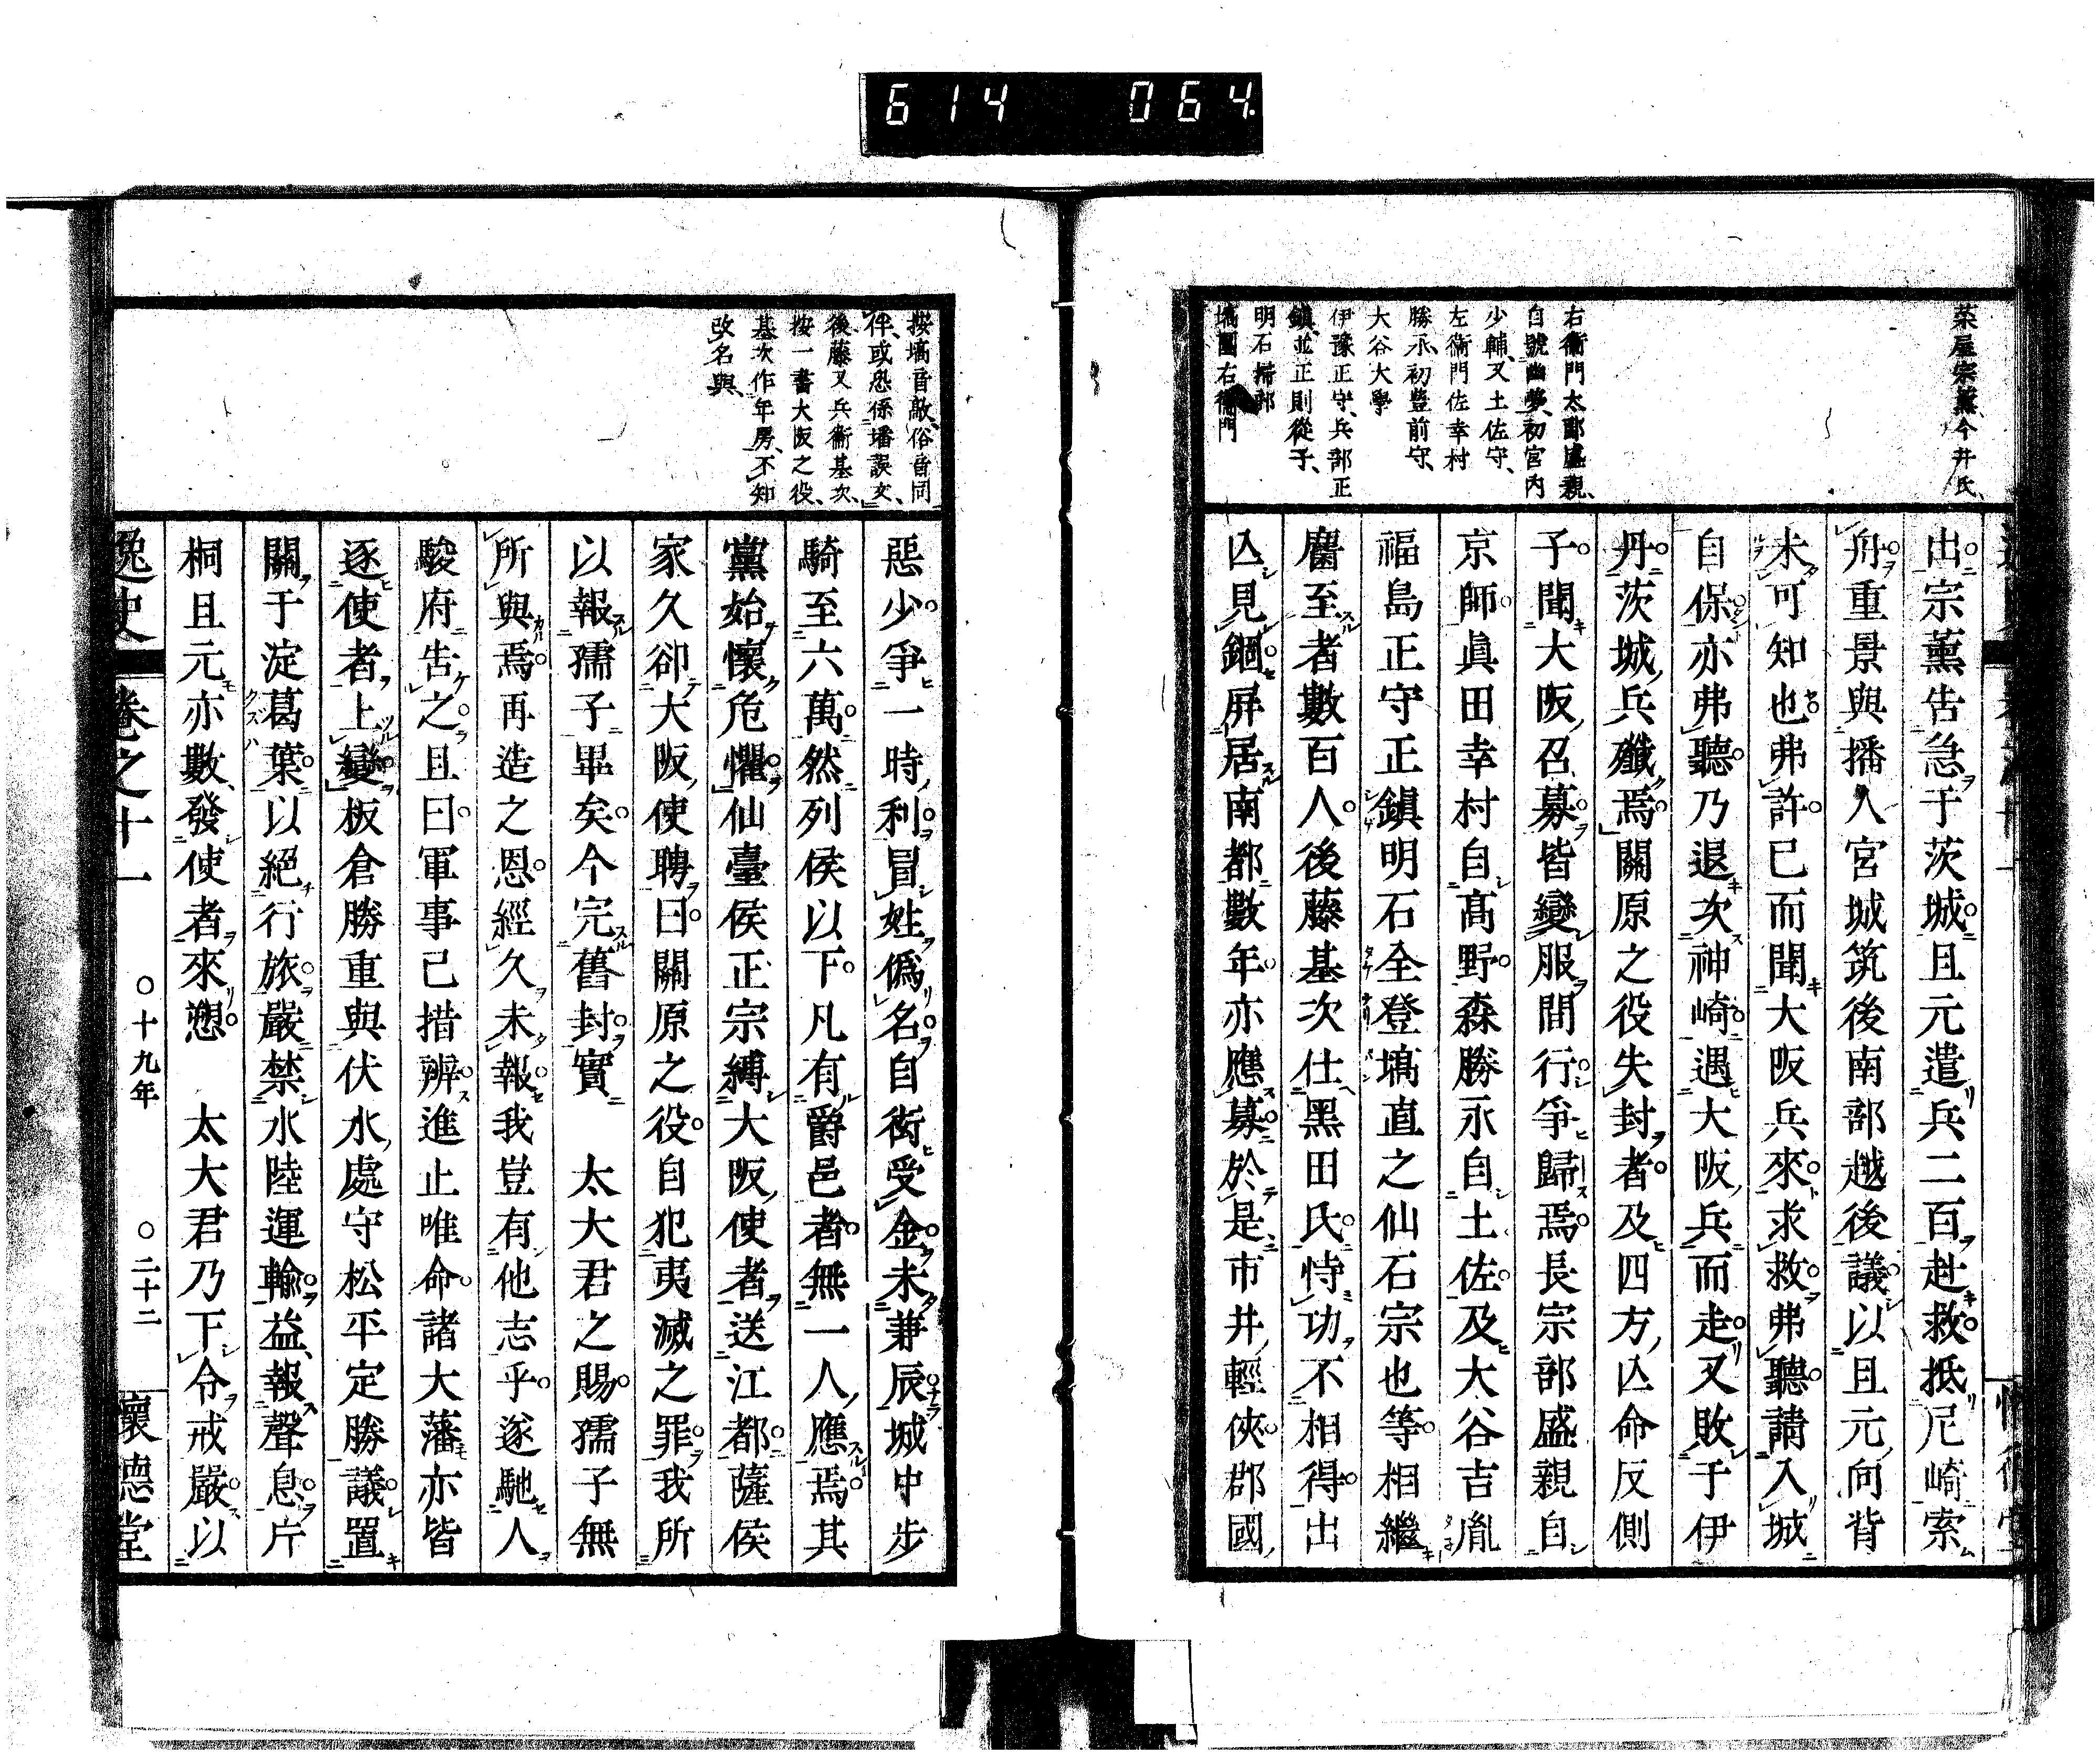 614 064
菜屋宗薰今井氏、
右衞門太郎盛親、
自號幽夢、初宮內
少輔、又土佐守、
左衞門佐幸村
勝永、初豐前守、
大谷大學
伊豫正守、兵部正
鎭、並正則從子、
明石掃部
塙團右衞門
出宗薰告急于茨城且元遣兵二百赴救抵尼崎索
舟重景與播人宮城筑後南部越後議以且元向背
未可知也弗許已而聞大阪兵來求救弗聽請入城
自保亦弗聽乃退次神崎遇大阪兵而走又敗于伊
丹茨城兵殲焉關原之役失封者及四方亾命反側
子聞大阪召募皆變服間行爭歸焉長宗部盛親自
京師眞田幸村自高野森勝永自土佐及大谷吉胤
福島正守正鎭明石全登塙直之仙石宗也等相繼
麕至者數百人後藤基次仕黑田氏恃功不相得出
亾見錮屏居南都數年亦應募於是市井輕俠郡國
按塙音敵、俗音同
伴、或恐係墦誤文、
後藤又兵衞基次、
按一書大阪之役、
基次作年房、不知
改名與、
惡少爭一時利冒姓僞名自衒受金未兼辰城中步
騎至六萬然列侯以下凡有爵邑者無一人應焉其
黨始懷危懼仙臺侯正宗縛大阪使者送江都薩侯
家久卻大阪使聘曰關原之役自犯夷滅之罪我所
以報孺子畢矣今完舊封實　太大君之賜孺子無
所與焉再造之恩經久未報我豈有他志乎遂馳人
駿府告之且曰軍事已措辨進止唯命諸大藩亦皆
逐使者上變板倉勝重與伏水處守松平定勝議置
關于淀葛葉以絕行旅嚴禁水陸運輸益報聲息片
桐且元亦數發使者來愬　太大君乃下令戒嚴以
逸史 卷之十一 ○十九年 ○二十二 懷德堂